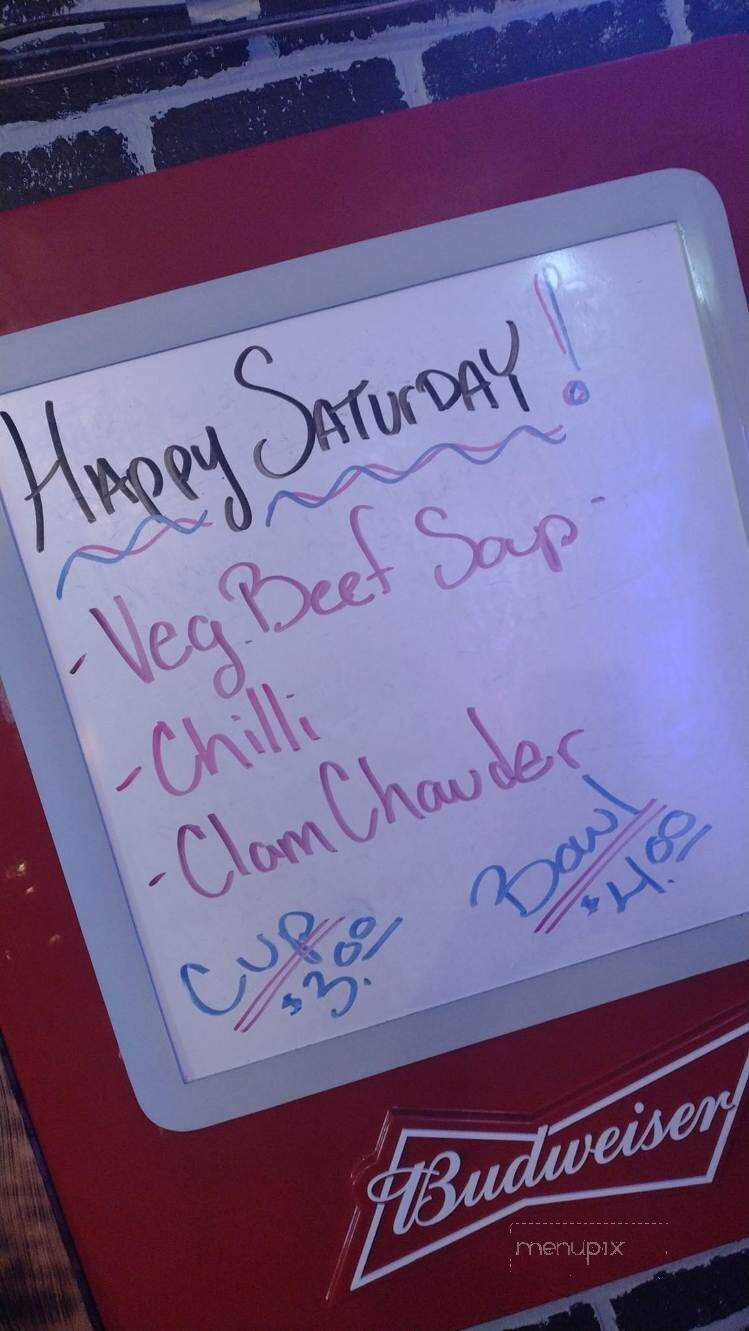 Happy Saturday!
- Veg. Beef Soup -
- Chilli
- Clam Chowder
Cup $3.00 Bowl $4.00
Budweiser
menupix